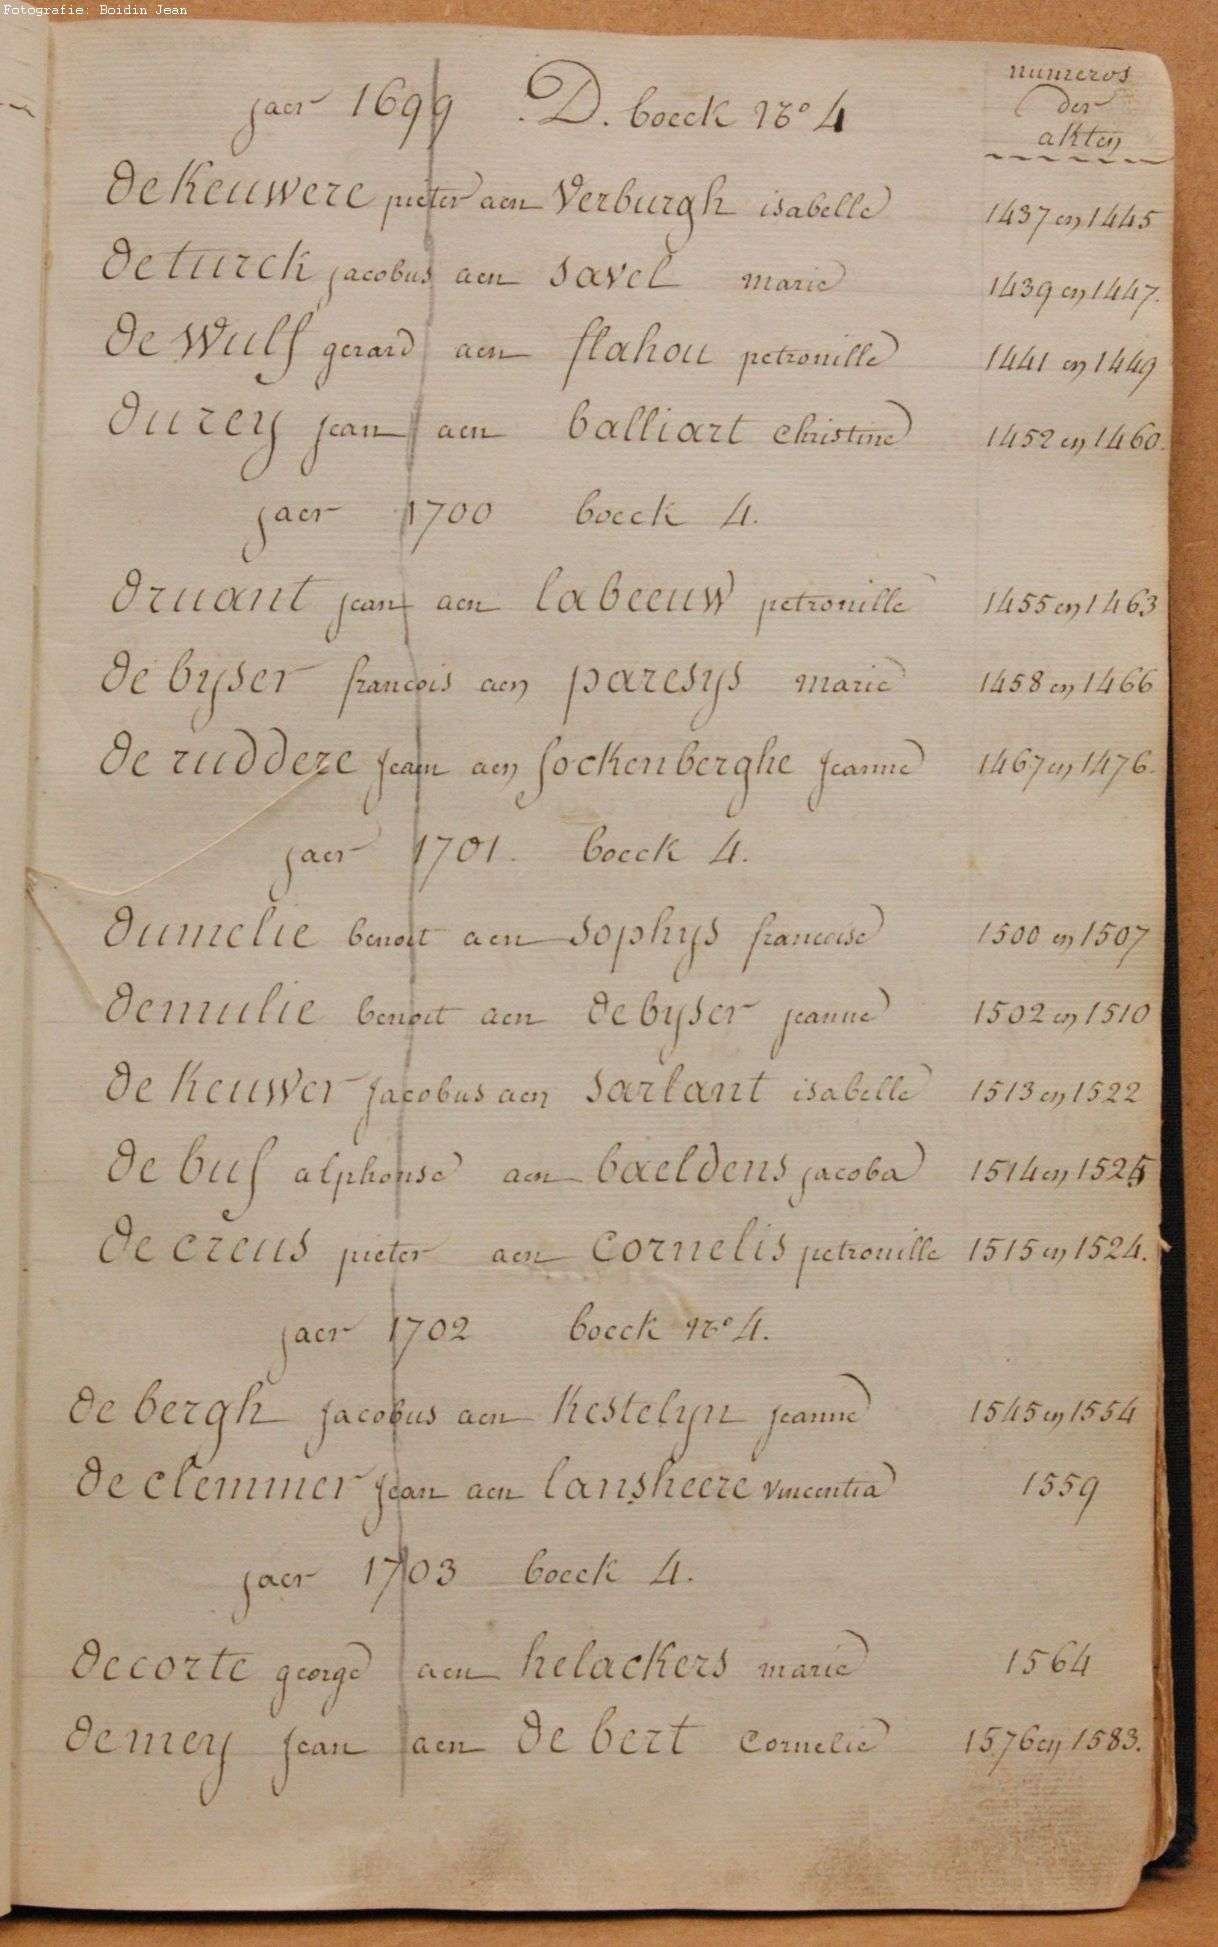 Fotografie: Boidin Jean
numeros
der
akten
jaer 1699 D. boeck No 4
de Keuwere pieter aen Verburgh isabelle 1437 en 1445
de turck jacobus aen savel marie 1439 en 1447.
de Wulf gerard aen flahou petronille 1441 en 1449
durey jean aen balliart christine 1452 en 1460.
jaer 1700 boeck 4.
druant jean aen labeeuw petronille 1455 en 1463
de byser francois aen paresys marie 1458 en 1466
de ruddere jean aen fockenberghe jeanne 1467 en 1476.
jaer 1701. boeck 4.
dumelie benoit aen sophys francoise 1500 en 1507
demulie benoit aen de byser jeanne 1502 en 1510
de Keuwer jacobus aen sarlant isabelle 1513 en 1522
de buf alphonse aen baeldens jacoba 1514 en 1525
de creus pieter aen cornelis petronille 1515 en 1524.
jaer 1702 boeck No 4.
de bergh jacobus aen Kestelyn jeanne 1545 en 1554
de clemmer jean aen lansheere vincentia 1559
jaer 1703 boeck 4.
decorte george aen helackers marie 1564
demey jean aen de bert cornelie 1576 en 1583.